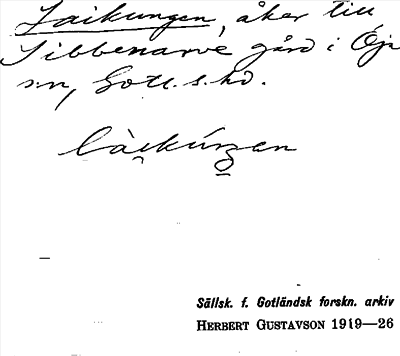 Laikungen, åker till
Sibbenarve gård i Öja
sn, Gotl. s. hd.
làikúngen
Sällsk. f. Gotländsk forskn. arkiv
HERBERT GUSTAVSON 1919—26